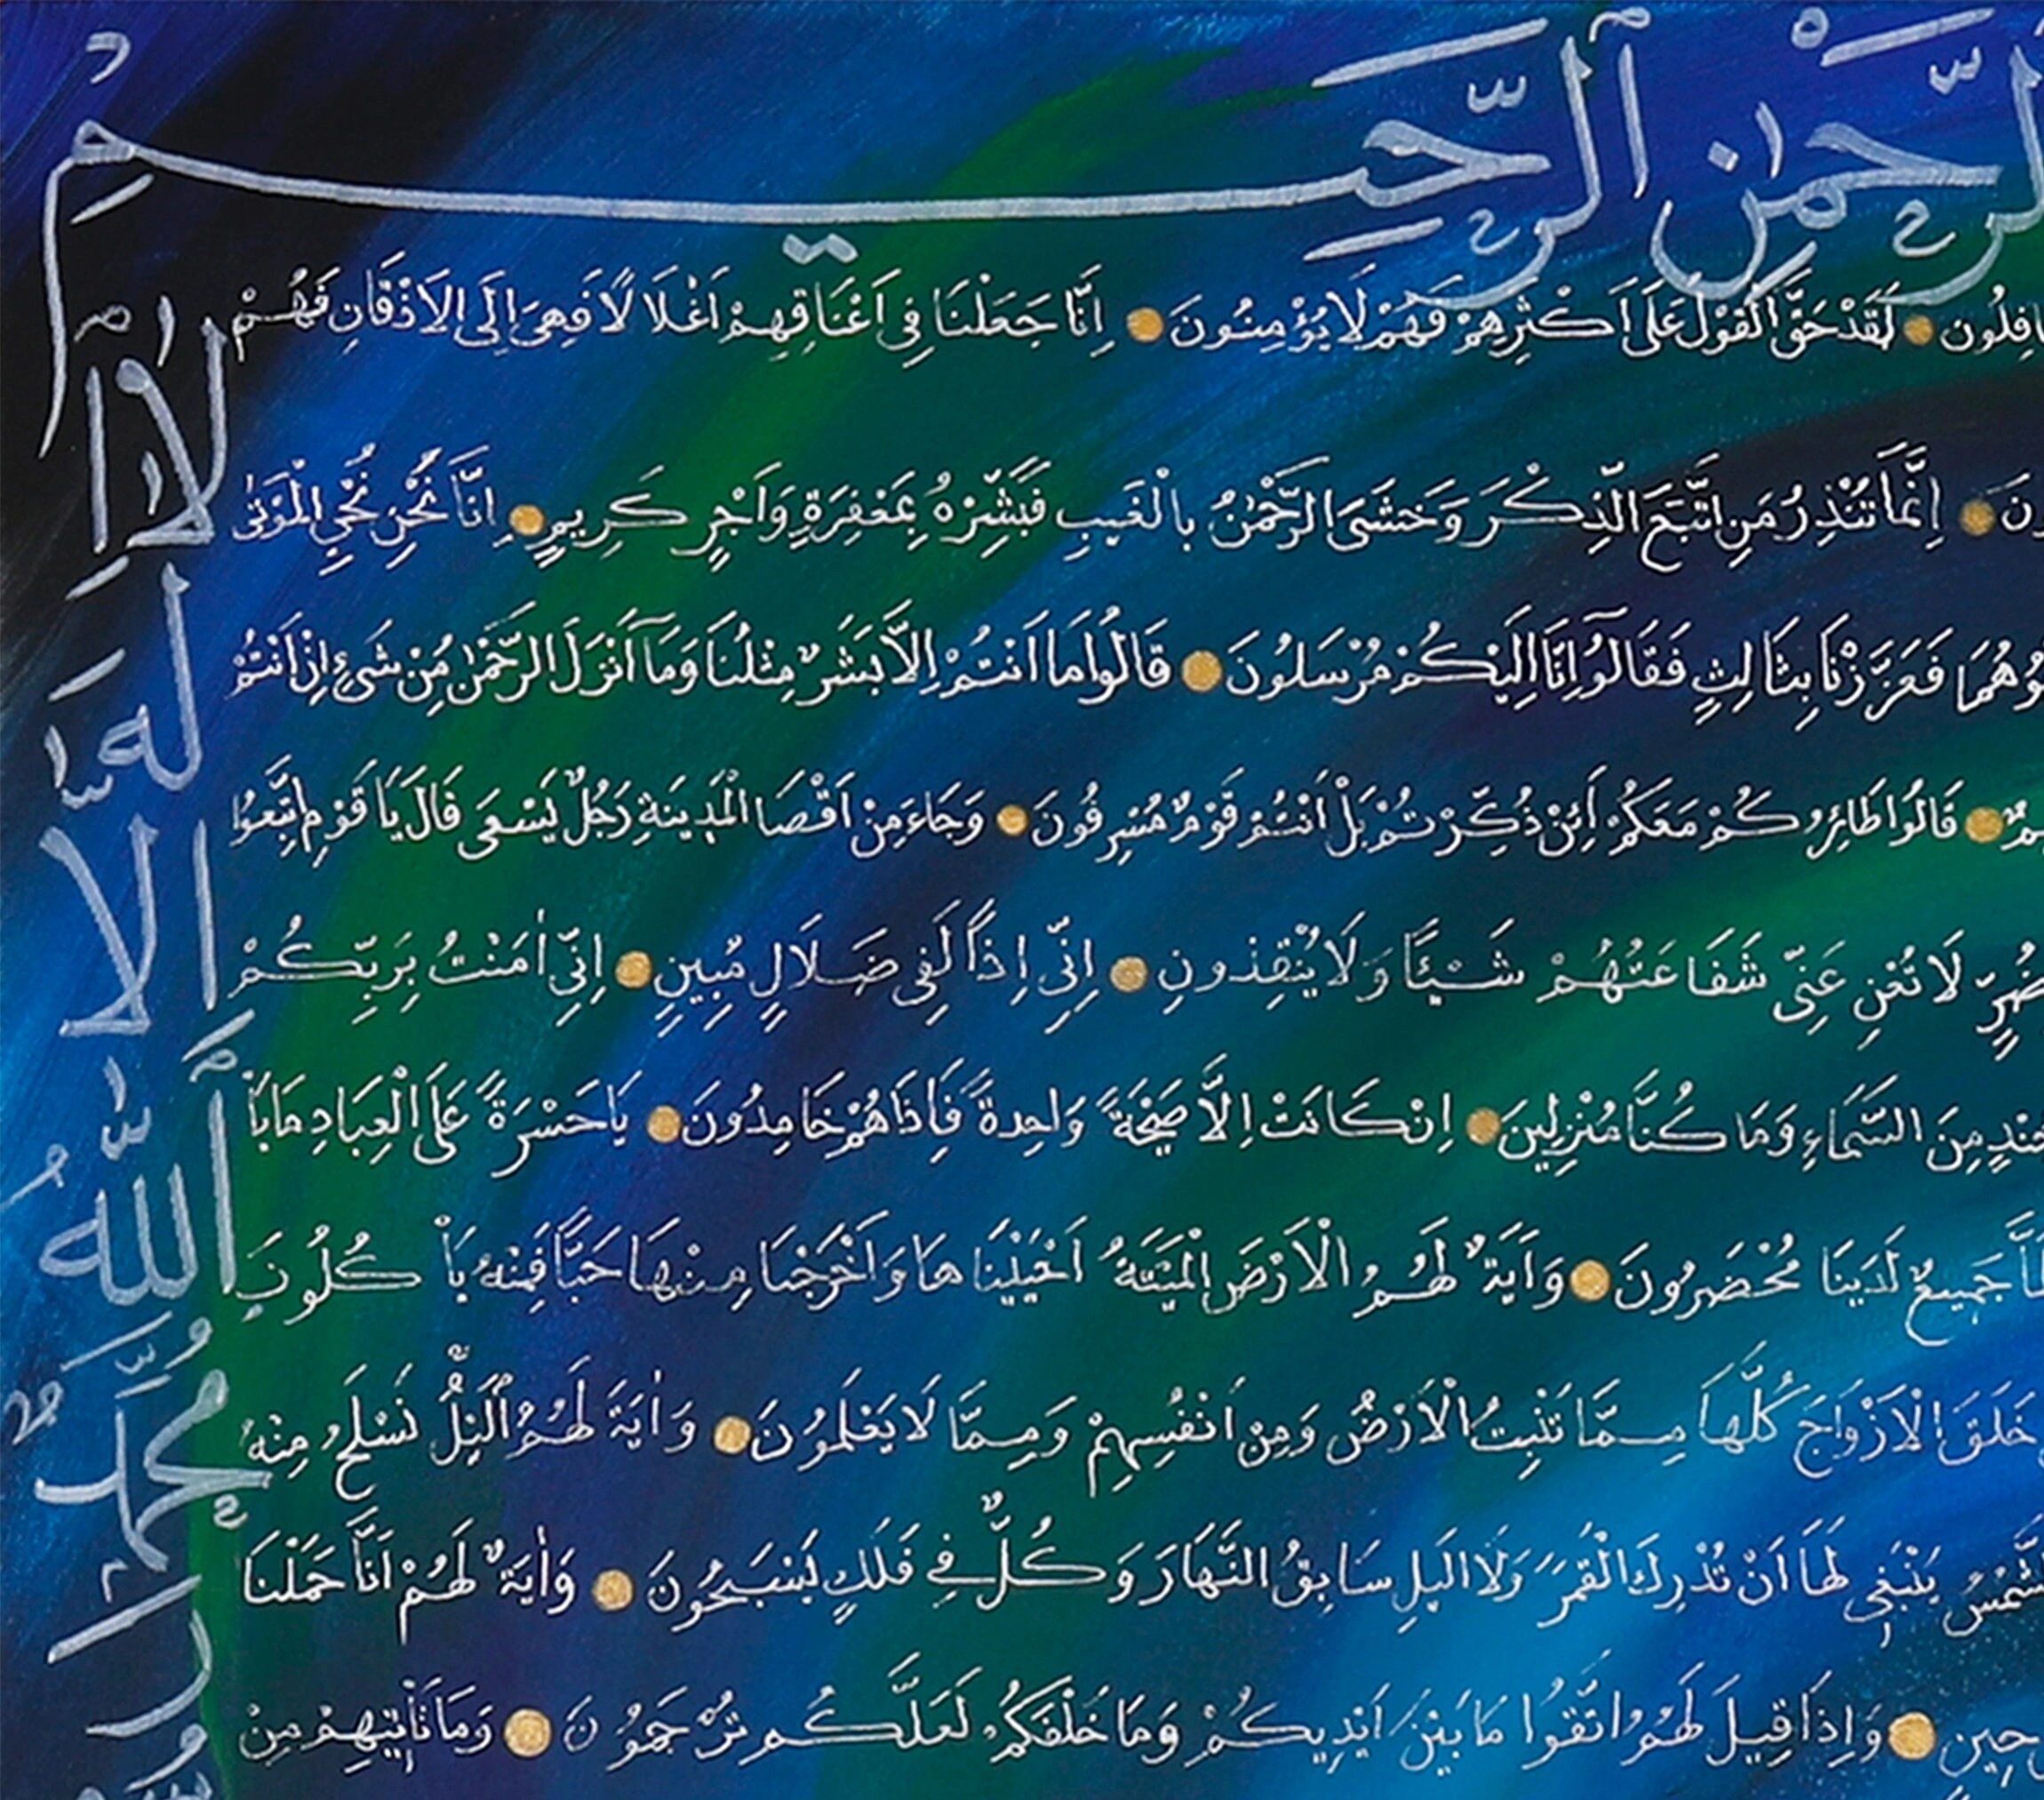 ٱلرَّحْمٰنِ ٱلرَّحِيمِ
لَقَدْ حَقَّ الْقَوْلُ عَلَى اَكْثَرِهِمْ فَهُمْ لَا يُؤْمِنُونَ ● اِنَّا جَعَلْنَا فِى اَعْنَاقِهِمْ اَغْلَا لًا فَهِىَ اِلَى الاَذْقَانِ فَهُمْ
نَ ● اِنَّمَا تُنْذِرُ مَنِ اتَّبَعَ الذِّكْرَ وَخَشَىَ الرَّحْمٰنَ بِالْغَيبِ فَبَشِّرْهُ بِمَغْفِرَةٍ وَاَجْرٍ كَرِيمٍ ● اِنَّا نَحْنُ نُحْيِ الْمَوْتٰى
فَعَزَّزْنَا بِثَالِثٍ فَقَالُوٓا اِنَّا اِلَيْكُمْ مُرْسَلُونَ ● قَالُوا مَا اَنْتُمْ اِلَّا بَشَرٌ مِثْلُنَا وَمَآ اَنْزَلَ الرَّحْمٰنُ مِنْ شَىْءٍ اِنْ اَنْتُمْ
● قَالُوا طَائِرُكُمْ مَعَكُمْ أَئِنْ ذُكِّرْتُمْ بَلْ اَنْتُمْ قَوْمٌ مُسْرِفُونَ ● وَجَاءَ مِنْ اَقْصَا الْمَدِينَةِ رَجُلٌ يَسْعَى قَالَ يَا قَوْمِ اتَّبِعُوا
لَا تُغْنِ عَنِّى شَفَاعَتُهُمْ شَيْئًا وَلَا يُنْقِذُونِ ● اِنِّى اِذًا لَفِى ضَلَالٍ مُبِينٍ ● اِنِّى اٰمَنْتُ بِرَبِّكُمْ
مِنَ السَّمَاءِ وَمَا كُنَّا مُنْزِلِينَ ● اِنْ كَانَتْ اِلَّا صَيْحَةً وَاحِدةً فَاِذَا هُمْ خَامِدُونَ ● يَا حَسْرَةً عَلَى الْعِبَادِ مَا يَاْ
جَمِيعٌ لَدَينَا مُحْضَرُونَ ● وَاَيَةٌ لَهُمُ الْاَرْضُ الْمَيْتَةُ اَحْيَيْنَاهَا وَاَخْرَجْنَا مِنْهَا حَبًّا فَمِنْهُ يَاْ كُلُونَ
خَلَقَ الْاَزْوَاجَ كُلَّهَا مِمَّا تُنْبِتُ الْاَرْضُ وَمِنْ اَنْفُسِهِمْ وَمِمَّا لَا يَعْلَمُونَ ● وَاٰيَةٌ لَهُمُ اَلَّيْلُ نَسْلَخُ مِنْهُ
يَنْبَغِى لَهَا اَنْ تُدْرِكَ الْقَمَرَ وَلَا الَّيلِ سَابِقُ النَّهَارَ وَكُلٌّ فِى فَلَكٍ يَسْبَحُونَ ● وَاٰيَةٌ لَهُمْ اَنَّا حَمَلْنَا
حِينٍ ● وَاِذَا قِيلَ لَهُمُ اتَّقُوا مَا بَيْنَ اَيْدِيكُمْ وَمَا خَلْفَكُمْ لَعَلَّكُمْ تُرْحَمُونَ ● وَمَا تَأْتِيهِمْ مِنْ
لَآ اِلٰهَ اِلَّا ٱللّٰهُ مُحَمَّدٌ